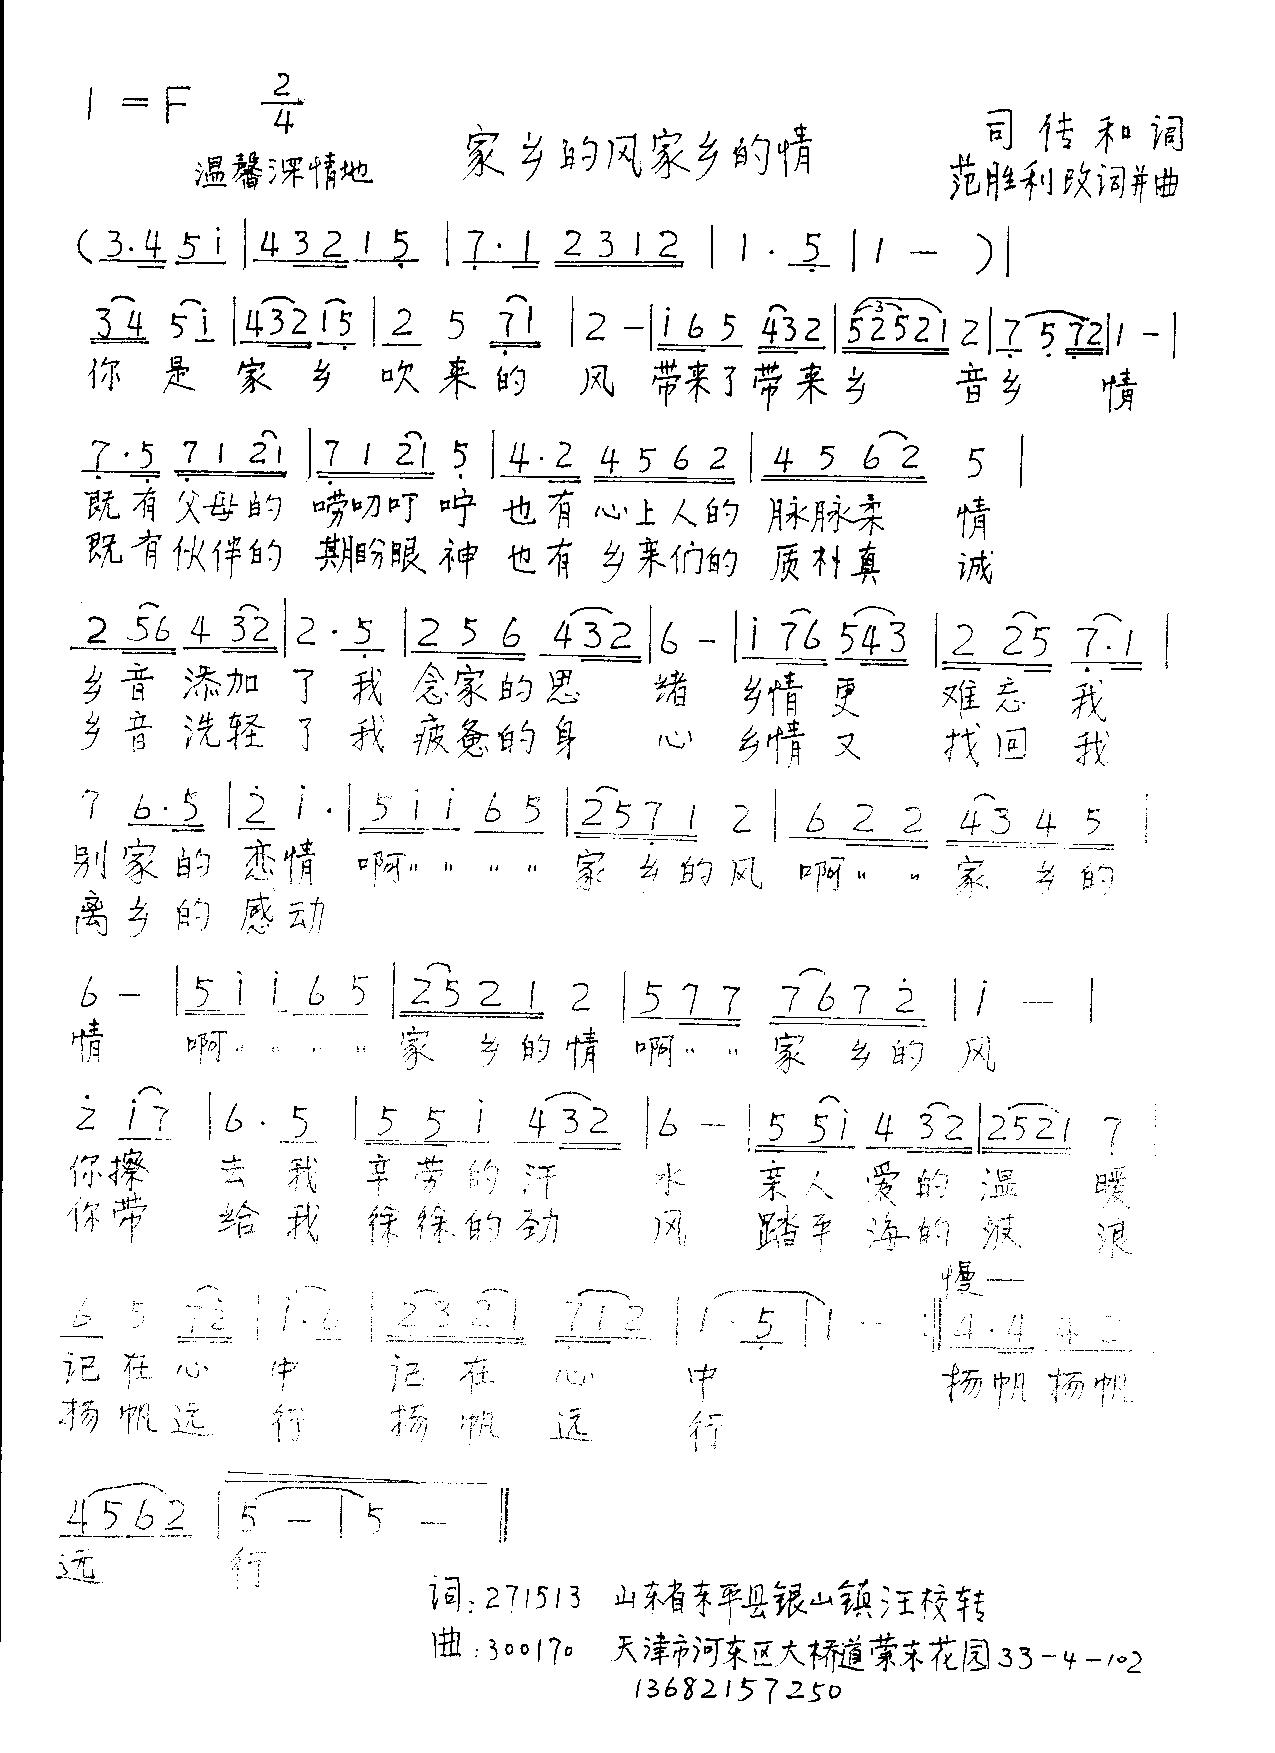 1=F 2/4
家乡的风家乡的情
司传和词
温馨深情地
范胜利改词并曲
(3.4 5i|43215|7.1 2312|1.5|1－)|
34 5i|43215|2 5 71|2－|i65 432|525212|7572|1－|
你是家乡吹来的风带来了带来乡音乡情
7.5 7121|7121 5|4.2 4562|4562 5|
既有父母的唠叨叮咛也有心上人的脉脉柔情
既有伙伴的期盼眼神也有乡亲们的质朴真诚
2 56 4 32|2.5|256 432|6－|i76 543|2 25 7.1|
乡音添加了我念家的思绪乡情更难忘我
乡音洗轻了我疲惫的身心乡情又找回我
7 6.5|2 i.|5ii65|2571 2|622 4345|
别家的恋情啊〃〃〃〃家乡的风啊〃〃家乡的
离乡的感动
6－|5ii65|2521 2|577 7672|i－|
情啊〃〃〃〃家乡的情啊〃〃家乡的风
2 i7|6.5|55i 432|6－|5 5i 4 32|2521 7|
你擦去我辛劳的汗水亲人爱的温暖
你带给我徐徐的劲风踏平海的波浪
慢—
6 5 72|i.6|2321 712|1.5|1－‖4.4 42
记在心中记在心中扬帆扬帆
扬帆远行扬帆远行
4562|5－|5－‖
远行
词:271513 山东省东平县银山镇汪校转
曲:300170 天津市河东区大桥道荣东花园33-4-102
13682157250